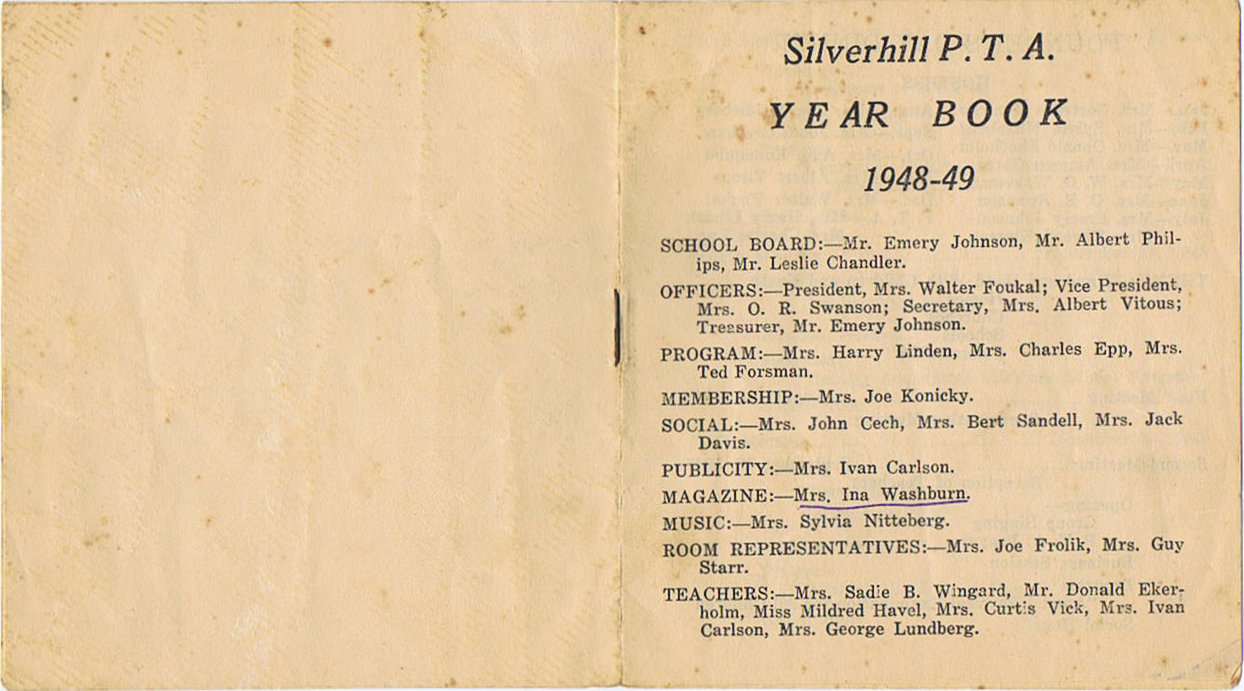 Silverhill P. T. A.
YEAR BOOK
1948-49
SCHOOL BOARD:—Mr. Emery Johnson, Mr. Albert Phil-
ips, Mr. Leslie Chandler.
OFFICERS:—President, Mrs. Walter Foukal; Vice President,
Mrs. O. R. Swanson; Secretary, Mrs. Albert Vitous;
Treasurer, Mr. Emery Johnson.
PROGRAM:—Mrs. Harry Linden, Mrs. Charles Epp, Mrs.
Ted Forsman.
MEMBERSHIP:—Mrs. Joe Konicky.
SOCIAL:—Mrs. John Cech, Mrs. Bert Sandell, Mrs. Jack
Davis.
PUBLICITY:—Mrs. Ivan Carlson.
MAGAZINE:—Mrs. Ina Washburn.
MUSIC:—Mrs. Sylvia Nitteberg.
ROOM REPRESENTATIVES:—Mrs. Joe Frolik, Mrs. Guy
Starr.
TEACHERS:—Mrs. Sadie B. Wingard, Mr. Donald Eker-
holm, Miss Mildred Havel, Mrs. Curtis Vick, Mrs. Ivan
Carlson, Mrs. George Lundberg.